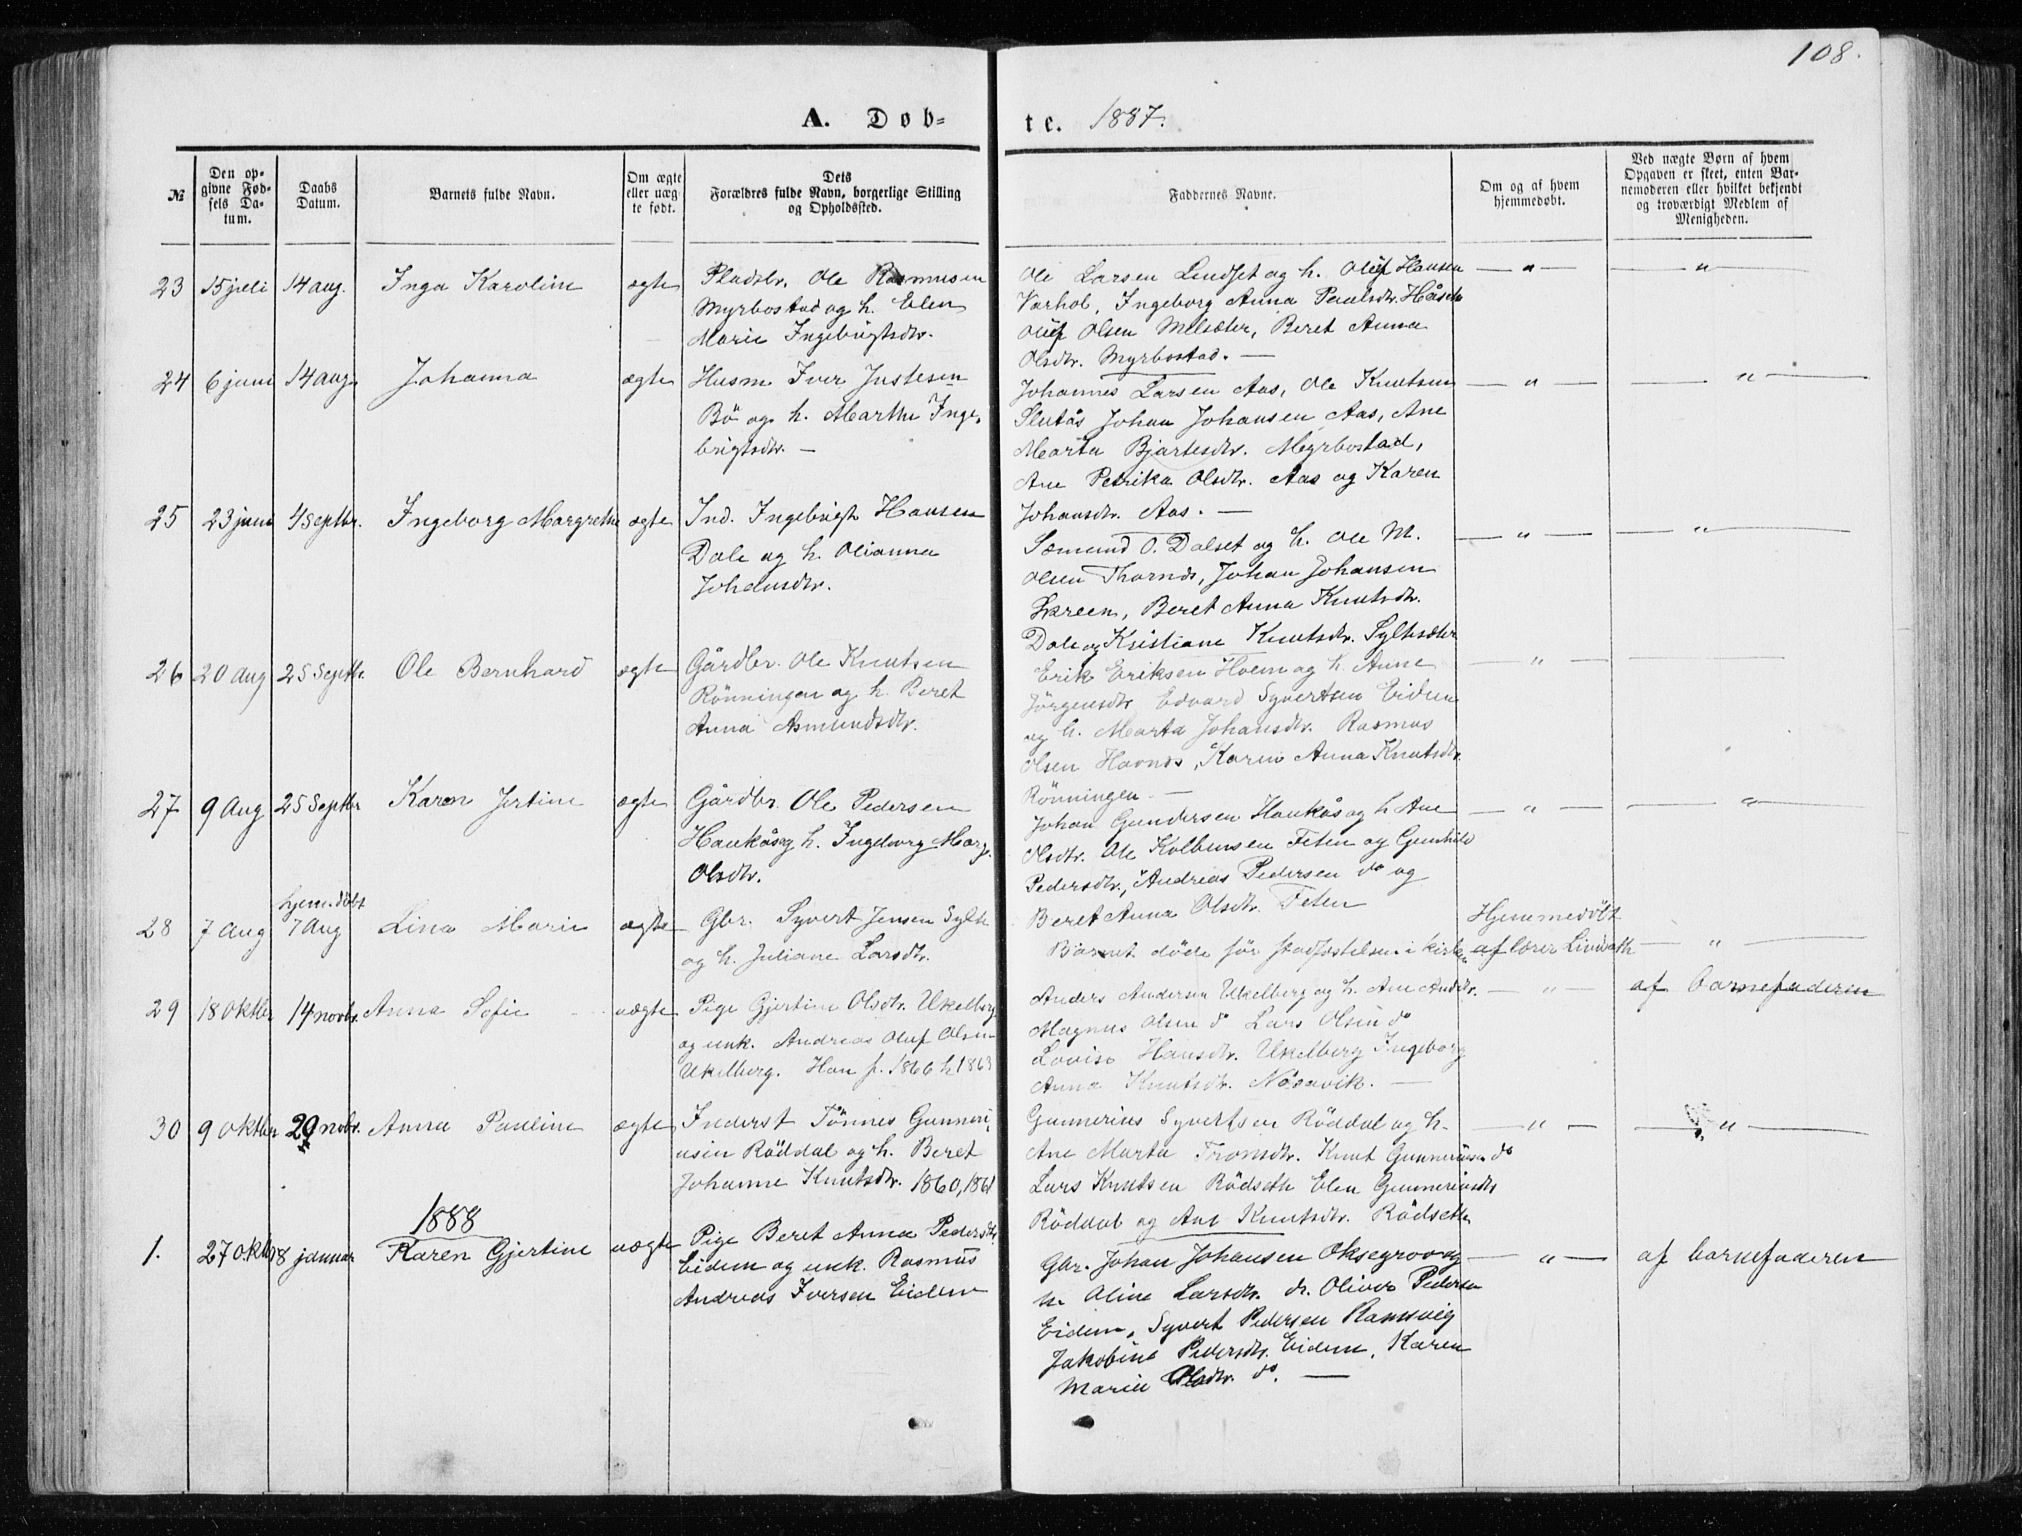 108.
A. Dob=
te. 1887.
№
Den op-
givne Fød-
sels Da-
tum.
Daabs
Datum.
Barnets fulde Navn.
Om ægte
eller uæg-
te født.
Dets
Forældres fulde Navn, borgerlige Stilling
og Opholdssted.
Faddernes Navne.
Om og af hvem
hjemmedøbt.
Ved uægte Børn af hvem
Opgaven er skeet, enten Bar-
nemoderen eller hvilket bekjendt
og troværdigt Medlem af
Menigheden.
23 15 juli 14 aug. Inga Karoline ægte
Pladsbr. Ole Rasmusen
Myrbostad og h. Elen
Marie Ingebrigtsdtr.
Ole Larsen Lindset og h. Oluf Hansen
Varhol, Ingeborg Anna Paulsdtr.
Oluf Olsen Melsæter, Beret Anna
Olsdtr. Myrbostad. —
— " — "
24 6 juni 14 aug. Johanna ægte
Husm Iver Justesen
Bö og h. Marthe Inge,
brigtsdtr. —
Johannes Larsen Aas, Ole Knutsen
Slutås Johan Johansen Aas, Ane
Marta Bjartesdtr. Myrbostad,
Ane Petrika Olsdtr. Aas og Karen
Johansdtr. Aas. —
— " — — " —
25 23 juni 4 Septbr. Ingeborg Margrethe ægte
Ind. Ingebrigt Hansen
Dale og h. Olianna
Johansdtr.
Sæmund O. Dalset og h. Ole M.
Olsen Thornes, Johan Johansen
Skreen, Beret Anna Knutsdtr.
Dale og Kristiane Knutsdtr. Syltesæter
— " — — " —
26 20 aug 25 Septbr. Ole Bernhard ægte
Gårdbr. Ole Knutsen
Rönningen og h. Beret
Anna Asmundsdtr.
Erik Eriksen Hoem og h. Anne
Jörgensdtr Edvard Syvertsen Eidem
og h. Marta Johansdtr. Rasmus
Olsen Havnes, Karen Anna Knutsdtr.
Rönningen —
— " — —
27 9 Aug 25 Septbr Karen Jertine ægte
Gårdbr. Ole Pedersen
Haukås og h. Ingeborg Marg.
Olsdtr.
Johan Gundersen Haukås og h Ane
Olsdtr. Ole Kolbensen Feten og Gunhild
Pedersdtr., Andreas Pedersen do og
Beret Anna Olsdtr. Feten
— " — — " —
hjemdöbt
28 7 Aug 7 Aug Lina Marie ægte
Gbr. Syvert Jensen Sylte
og h. Juliane Larsdtr.
Barnet döde för stadfæstelsen i kirken
Hjemmedöbt
af lærer — " —
29 18 Oktbr 14 novbr. Anna Sofie uægte
Pige Gjertine Olsdtr. Ukelberg
og unk. Andreas Oluf Olsen
Ukelberg. Han f. 1866 h 1863
Anders Andersen Ukelberg og h. Ane Andsdtr.
Magnus Olsen do Lars Olsen do
Lovise Hansdtr. Ukelberg Ingeborg
Anna Knutsdtr. Näsavik. —
— " — af barnefaderen
30 9 Oktbr 20 novbr. Anna Pauline ægte
Inderst Tönnes Gunneri,
usen Röddal og h. Beret
Johanne Knutsdtr. 1860, 1861
Gunnerius Syvertsen Röddal og h.
Ane Marta Tronsdtr. Knut Gunneriusen do
Lars Knutsen Rödseth Elen Gunneriusdtr
Röddal og Ane Knutsdtr. Rödseth
— " — — " —
1888
1. 27 Oktbr 8 januar Karen Gjertine uægte
Pige Beret Anna Pedersdtr.
Eidem og unk. Rasmus
Andreas Iversen Eidem
Gbr. Johan Johansen Oksegrov og
h. Aline Larsdtr. dr. Oliver Pedersen
Eidem, Syvert Pedersen Ramsvig
Jakobine Pedersdtr. Eidem, Karen
Marie Olsdtr. do. —
— " — af barnefaderen